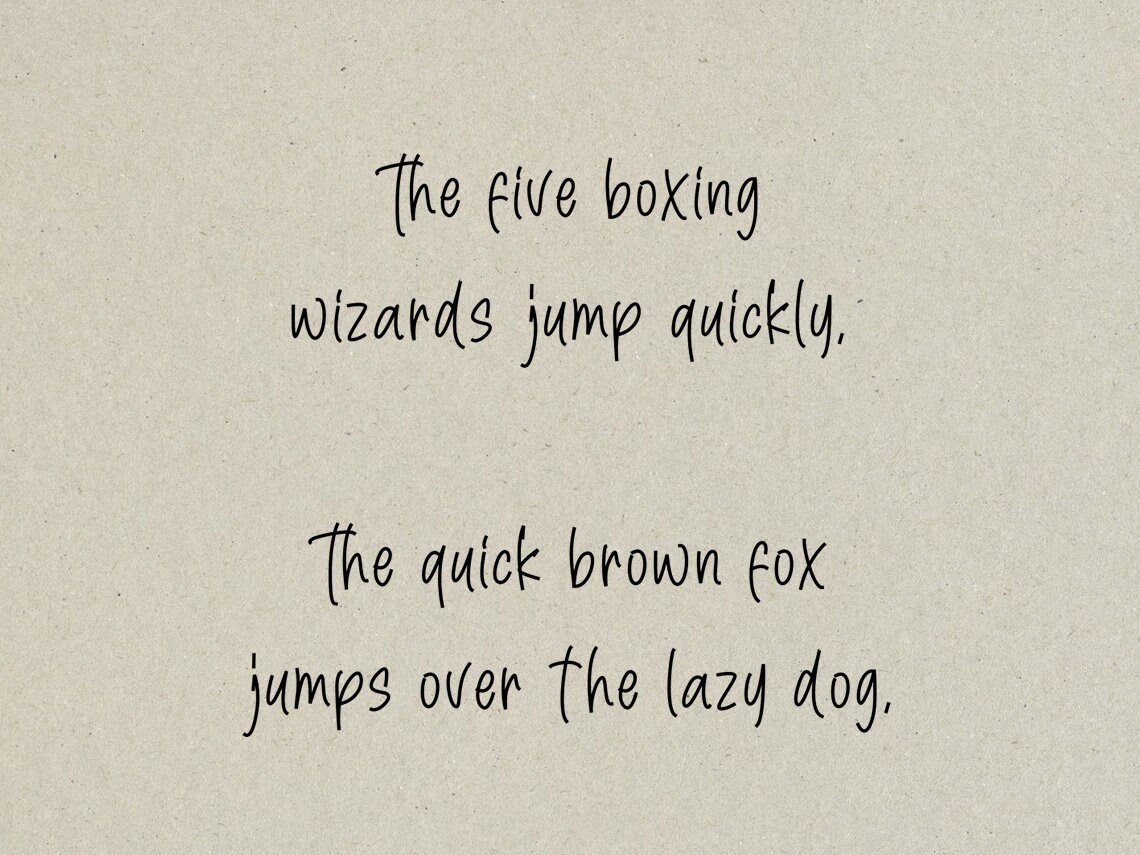 the five boxing
wizards jump quickly.
the quick brown fox
jumps over the lazy dog.